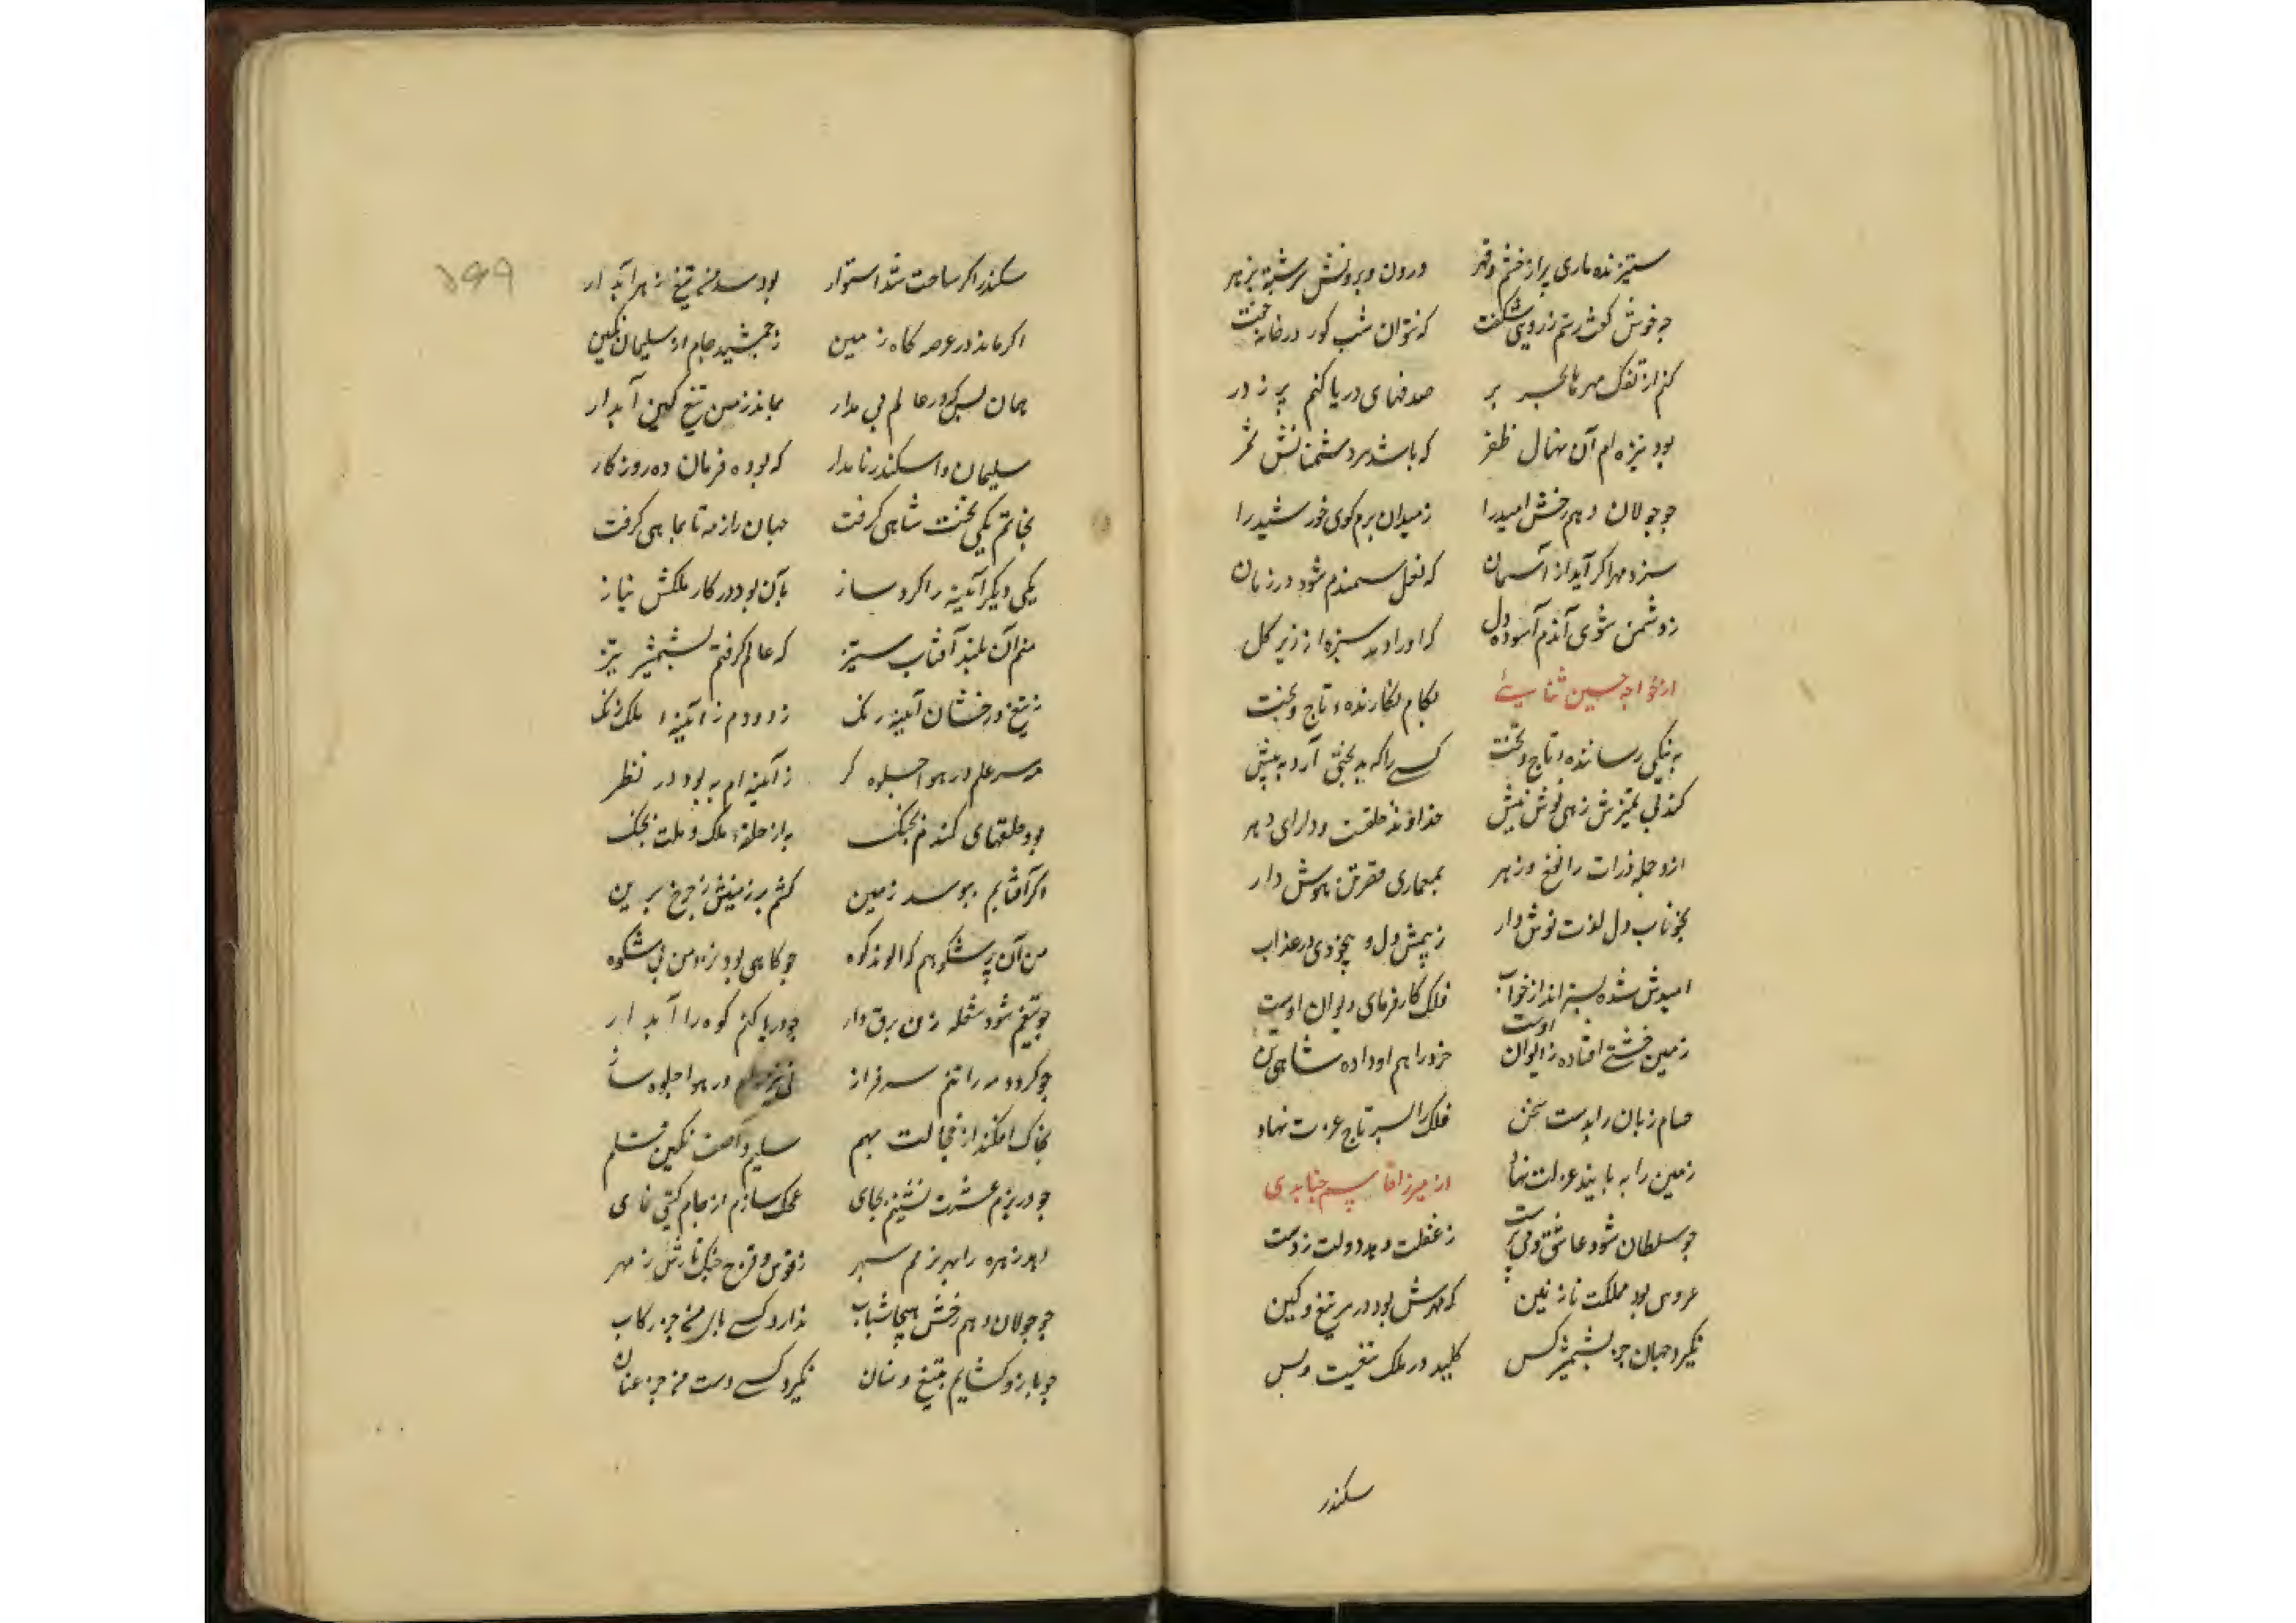 ستیزنده ماری پر از خشم و قهر درون و برونش سرشته بزهر
چو خوش گفت رستم ز روی شگفت که نتوان شب کور در خانه خفت
صدفهای دریا کنم پر ز در
بود نیزه ام آن نهال ظفر که باشد سر دشمنانش ثمر
چو جولان دهم رخش امید را ز میدان برم گوی خورشید را
سزد مه را گر آید از آسمان که نعل سمندم شود در زمان
ز دشمن شوی آندم آسوده دل که او را دمد سبزه از زیر گل
از خواجه حسین ثنایی بکام نگارنده تاج و تخت
به نیکی رساننده تاج و تخت کسی را که بدبختی آرد به پیش
کند بی تمیزش ز هی نوش نیش خداوند خلقت و دارای دهر
ازو جمله ذرات را نفع و زهر بمعماری هوش دار
بخوناب دل لذت نوش دار ز بیمش دل در عذاب
امیدش شده بستر انداز خواب فلک کارفرمای دیوان اوست
زمین خشتی افتاده ز ایوان اوست خرد را هم او داده شاهی تن
حسام زبان را بدست سخن فلک را بسر تاج عزت نهاد
زمین را به پا بند عزلت نهاد از میرزا قاسم جنابدی
چو سلطان شود عاشق و می پرست ز غفلت دهد دولت ز دست
عروس بود مملکت نازنین که مهرش بود در سر تیغ و کین
نگیرد جهان جز بشمشیر کس کلید در ملک تیغست و بس
سکندر
۵۶۹
سکندر اگر ساخت سد استوار بود سد من تیغ زهر آبدار
اگر ماند در عرصه گاه زمین ز جمشید جام از سلیمان نگین
همان بس که در عالم بی مدار بماند ز من تیغ کین آبدار
سلیمان و اسکندر نامدار که بوده فرمان ده روزگار
بخاتم یکی تخت شاهی گرفت جهان را ز مه تا بماهی گرفت
یکی دیگر آئینه را کرد ساز بآن بود در کار ملکش نیاز
منم آن بلند آفتاب ستیز که عالم گرفتم بشمشیر تیز
ز تیغ درخشان آئینه رنگ زدودم ز آئینه ملک زنگ
سر علم در هوا جلوه گر ز آئینه ام به بود در نظر
بود حلقهای کمندم بجنگ به از حلقه ملک و ملت بچنگ
اگر آفتابم ببوسد زمین کشم بر زمینش ز چرخ برین
من آن پر شکوهم که الوند کوه چو کاهی بود نزد من بی شکوه
چو تیغم شود شعله زن برق وار چو دریا کنم کوه را آبدار
چو گردد سرافراز در هوا جلوه ساز
بخاک افکند از خجالت بهم سلیم آصف نگین قلم
چو در بزم عشرت نشینم بجای محک سازم از جام گیتی نمای
زهره را بهر بزمم سپهر ز قوس و قزح چنگ تارش ز مهر
چو جولان دهم رخش هیجا شتاب ندارد کسی پای من جز رکاب
چو بازو گشایم بتیغ و سنان نگیرد کسی دست من جز عنان